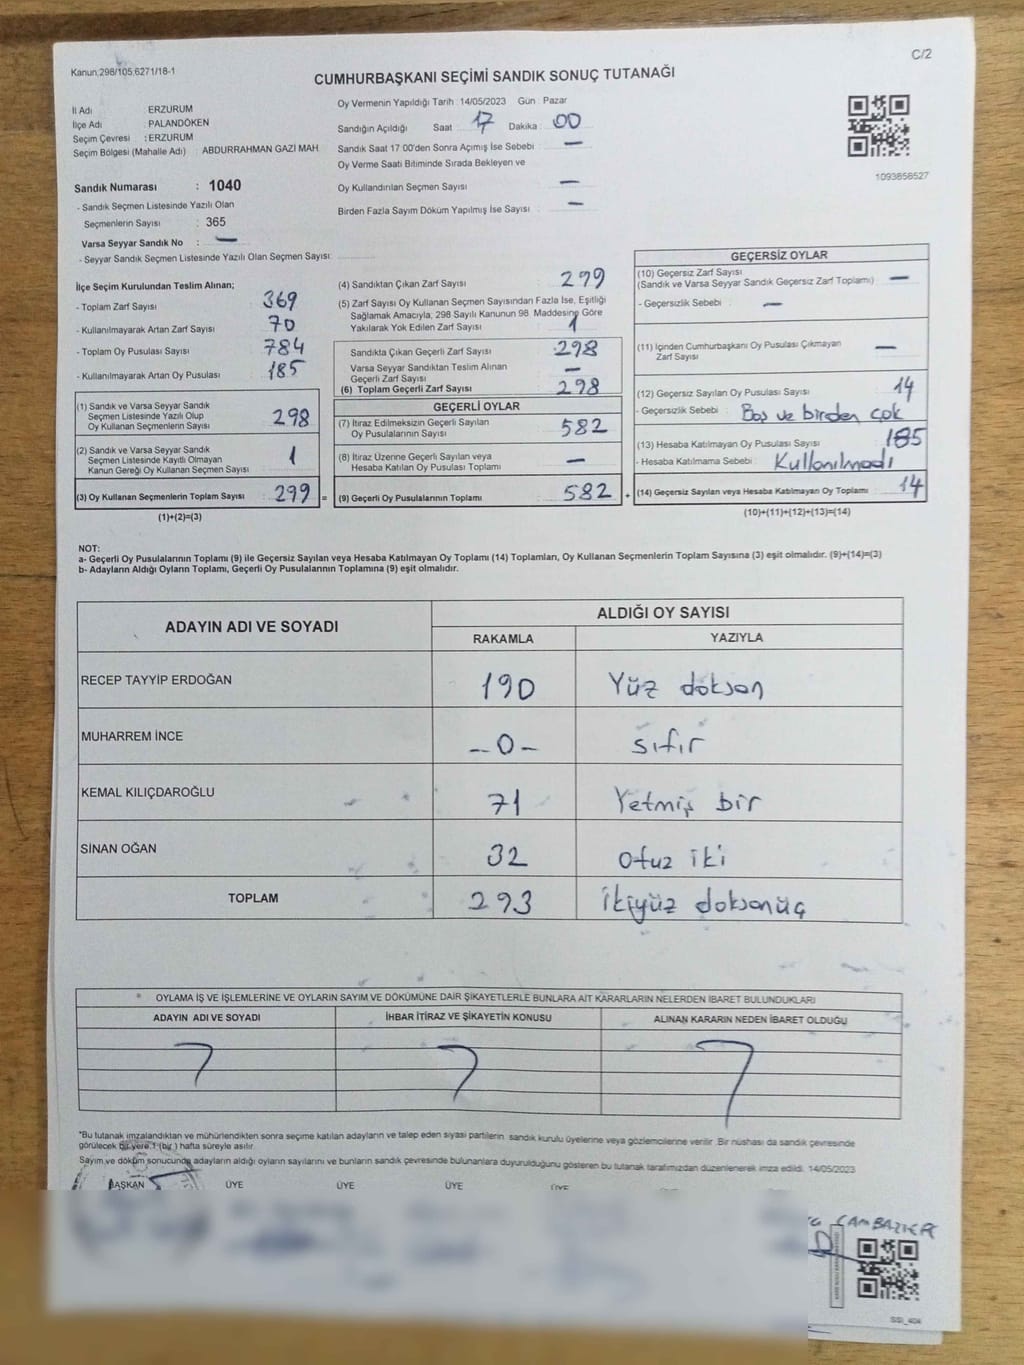 C/2
Kanun:298/105,6271/18-1
CUMHURBAŞKANI SEÇİMİ SANDIK SONUÇ TUTANAĞI
İl Adı : ERZURUM
İlçe Adı : PALANDÖKEN
Seçim Çevresi : ERZURUM
Seçim Bölgesi (Mahalle Adı) : ABDURRAHMAN GAZİ MAH.
Sandık Numarası : 1040
- Sandık Seçmen Listesinde Yazılı Olan
Seçmenlerin Sayısı : 365
Varsa Seyyar Sandık No : —
- Seyyar Sandık Seçmen Listesinde Yazılı Olan Seçmen Sayısı:
Oy Vermenin Yapıldığı Tarih : 14/05/2023 Gün : Pazar
Sandığın Açıldığı Saat : 17 Dakika : 00
Sandık Saat 17:00'den Sonra Açımış İse Sebebi : —
Oy Verme Saati Bitiminde Sırada Bekleyen ve
Oy Kullandırılan Seçmen Sayısı : —
Birden Fazla Sayım Döküm Yapılmış İse Sayısı : —
1093858527
İlçe Seçim Kurulundan Teslim Alınan;
- Toplam Zarf Sayısı : 369
- Kullanılmayarak Artan Zarf Sayısı : 70
- Toplam Oy Pusulası Sayısı : 784
- Kullanılmayarak Artan Oy Pusulası : 185
(1) Sandık ve Varsa Seyyar Sandık
Seçmen Listesinde Yazılı Olup
Oy Kullanan Seçmenlerin Sayısı : 298
(2) Sandık ve Varsa Seyyar Sandık
Seçmen Listesinde Kayıtlı Olmayan
Kanun Gereği Oy Kullanan Seçmen Sayısı : 1
(3) Oy Kullanan Seçmenlerin Toplam Sayısı : 299 =
(1)+(2)=(3)
(4) Sandıktan Çıkan Zarf Sayısı : 299
(5) Zarf Sayısı Oy Kullanan Seçmen Sayısından Fazla İse, Eşitliği
Sağlamak Amacıyla, 298 Sayılı Kanunun 98. Maddesine Göre
Yakılarak Yok Edilen Zarf Sayısı : 1
Sandıkta Çıkan Geçerli Zarf Sayısı : 298
Varsa Seyyar Sandıktan Teslim Alınan
Geçerli Zarf Sayısı : —
(6) Toplam Geçerli Zarf Sayısı : 298
GEÇERLİ OYLAR
(7) İtiraz Edilmeksizin Geçerli Sayılan
Oy Pusulalarının Sayısı : 582
(8) İtiraz Üzerine Geçerli Sayılan veya
Hesaba Katılan Oy Pusulası Toplamı : —
(9) Geçerli Oy Pusulalarının Toplamı : 582 +
GEÇERSİZ OYLAR
(10) Geçersiz Zarf Sayısı
(Sandık ve Varsa Seyyar Sandık Geçersiz Zarf Toplamı) : —
- Geçersizlik Sebebi : —
(11) İçinden Cumhurbaşkanı Oy Pusulası Çıkmayan
Zarf Sayısı : —
(12) Geçersiz Sayılan Oy Pusulası Sayısı : 14
- Geçersizlik Sebebi : Boş ve birden çok
(13) Hesaba Katılmayan Oy Pusulası Sayısı : 185
- Hesaba Katılmama Sebebi : Kullanılmadı
(14) Geçersiz Sayılan veya Hesaba Katılmayan Oy Toplamı : 14
(10)+(11)+(12)+(13)=(14)
NOT:
a- Geçerli Oy Pusulalarının Toplamı (9) ile Geçersiz Sayılan veya Hesaba Katılmayan Oy Toplamı (14) Toplamları, Oy Kullanan Seçmenlerin Toplam Sayısına (3) eşit olmalıdır. (9)+(14)=(3)
b- Adayların Aldığı Oyların Toplamı, Geçerli Oy Pusulalarının Toplamına (9) eşit olmalıdır.
ADAYIN ADI VE SOYADI ALDIĞI OY SAYISI
RAKAMLA YAZIYLA
RECEP TAYYİP ERDOĞAN 190 Yüz doksan
MUHARREM İNCE -0- sıfır
KEMAL KILIÇDAROĞLU 71 Yetmiş bir
SİNAN OĞAN 32 otuz iki
TOPLAM 293 ikiyüz doksanüç
OYLAMA İŞ VE İŞLEMLERİNE VE OYLARIN SAYIM VE DÖKÜMÜNE DAİR ŞİKAYETLERLE BUNLARA AİT KARARLARIN NELERDEN İBARET BULUNDUKLARI
ADAYIN ADI VE SOYADI İHBAR İTİRAZ VE ŞİKAYETİN KONUSU ALINAN KARARIN NEDEN İBARET OLDUĞU
*Bu tutanak imzalandıktan ve mühürlendikten sonra seçime katılan adayların ve talep eden siyasi partilerin sandık kurulu üyelerine veya gözlemcilerine verilir. Bir nüshası da sandık çevresinde
görülecek bir yere 1 (bir ) hafta süreyle asılır.
Sayım ve döküm sonucunda adayların aldığı oyların sayılarını ve bunların sandık çevresinde bulunanlara duyurulduğunu gösteren bu tutanak tarafımızdan düzenlenerek imza edildi. 14/05/2023
BAŞKAN ÜYE ÜYE ÜYE ÜYE
SSI_404